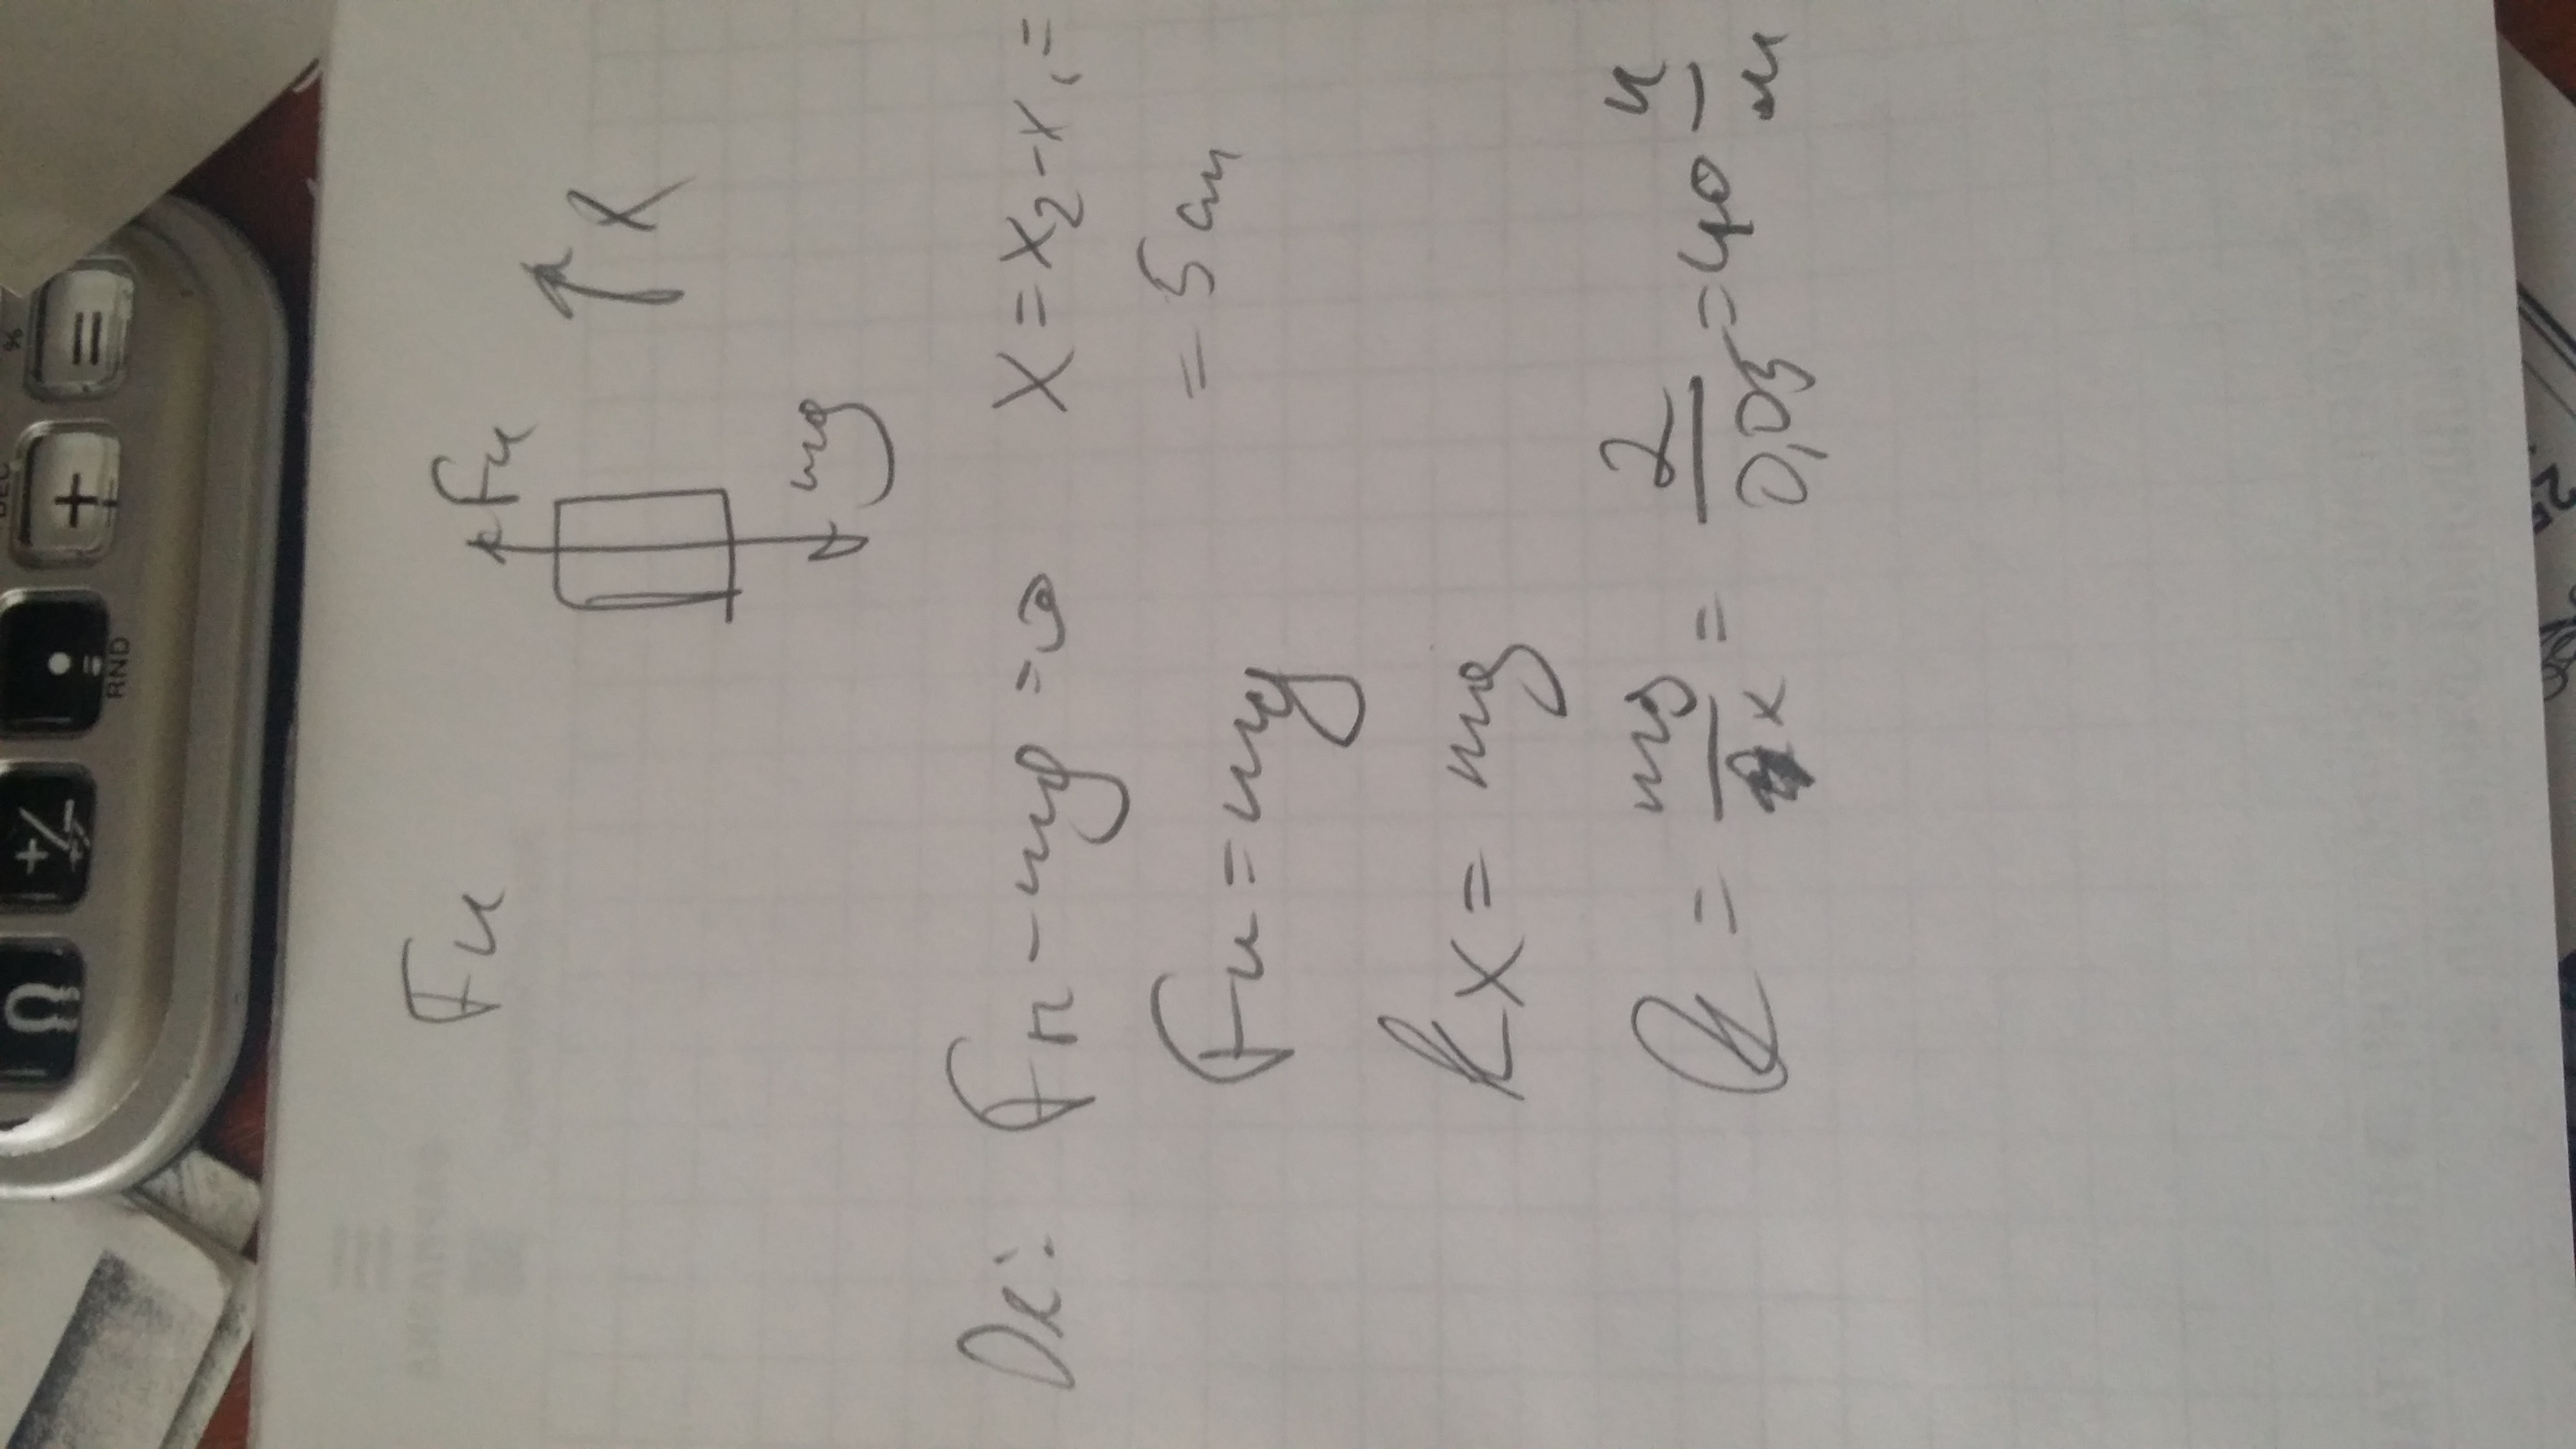 Fн
Fн
X
mg
Ox: Fн - mg = 0
X = X₂ - X₁ =
= 5 см
Fн = mg
kx = mg
k = mg/x = 2/0,05 = 40 н/м
%
=
+
RND
+/-